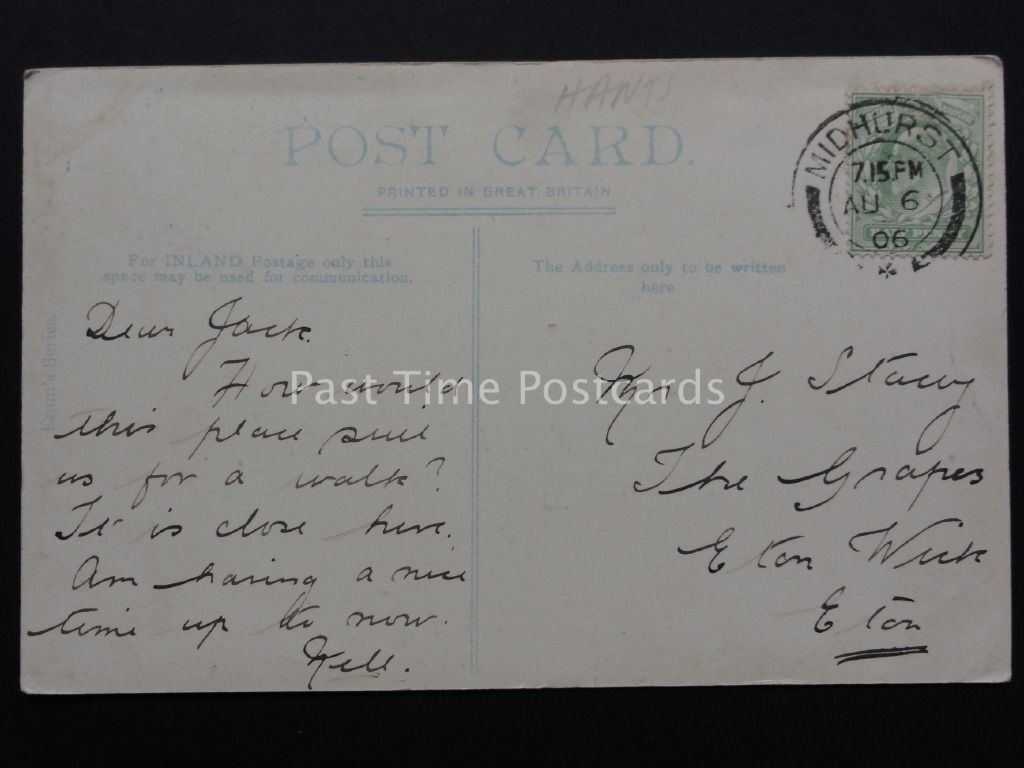 HANTS
POST CARD.
PRINTED IN GREAT BRITAIN
MIDHURST
7.15PM
AU 6
06
For INLAND Postage only this
space may be used for communication.
The Address only to be written
here
Series.
Dear Jack.
How would
this place suit
us for a walk?
It is close here.
Am having a nice
time up to now.
Nell.
Mr J. Stacey
The Grapes
Eton Wick
Eton
Past Time Postcards